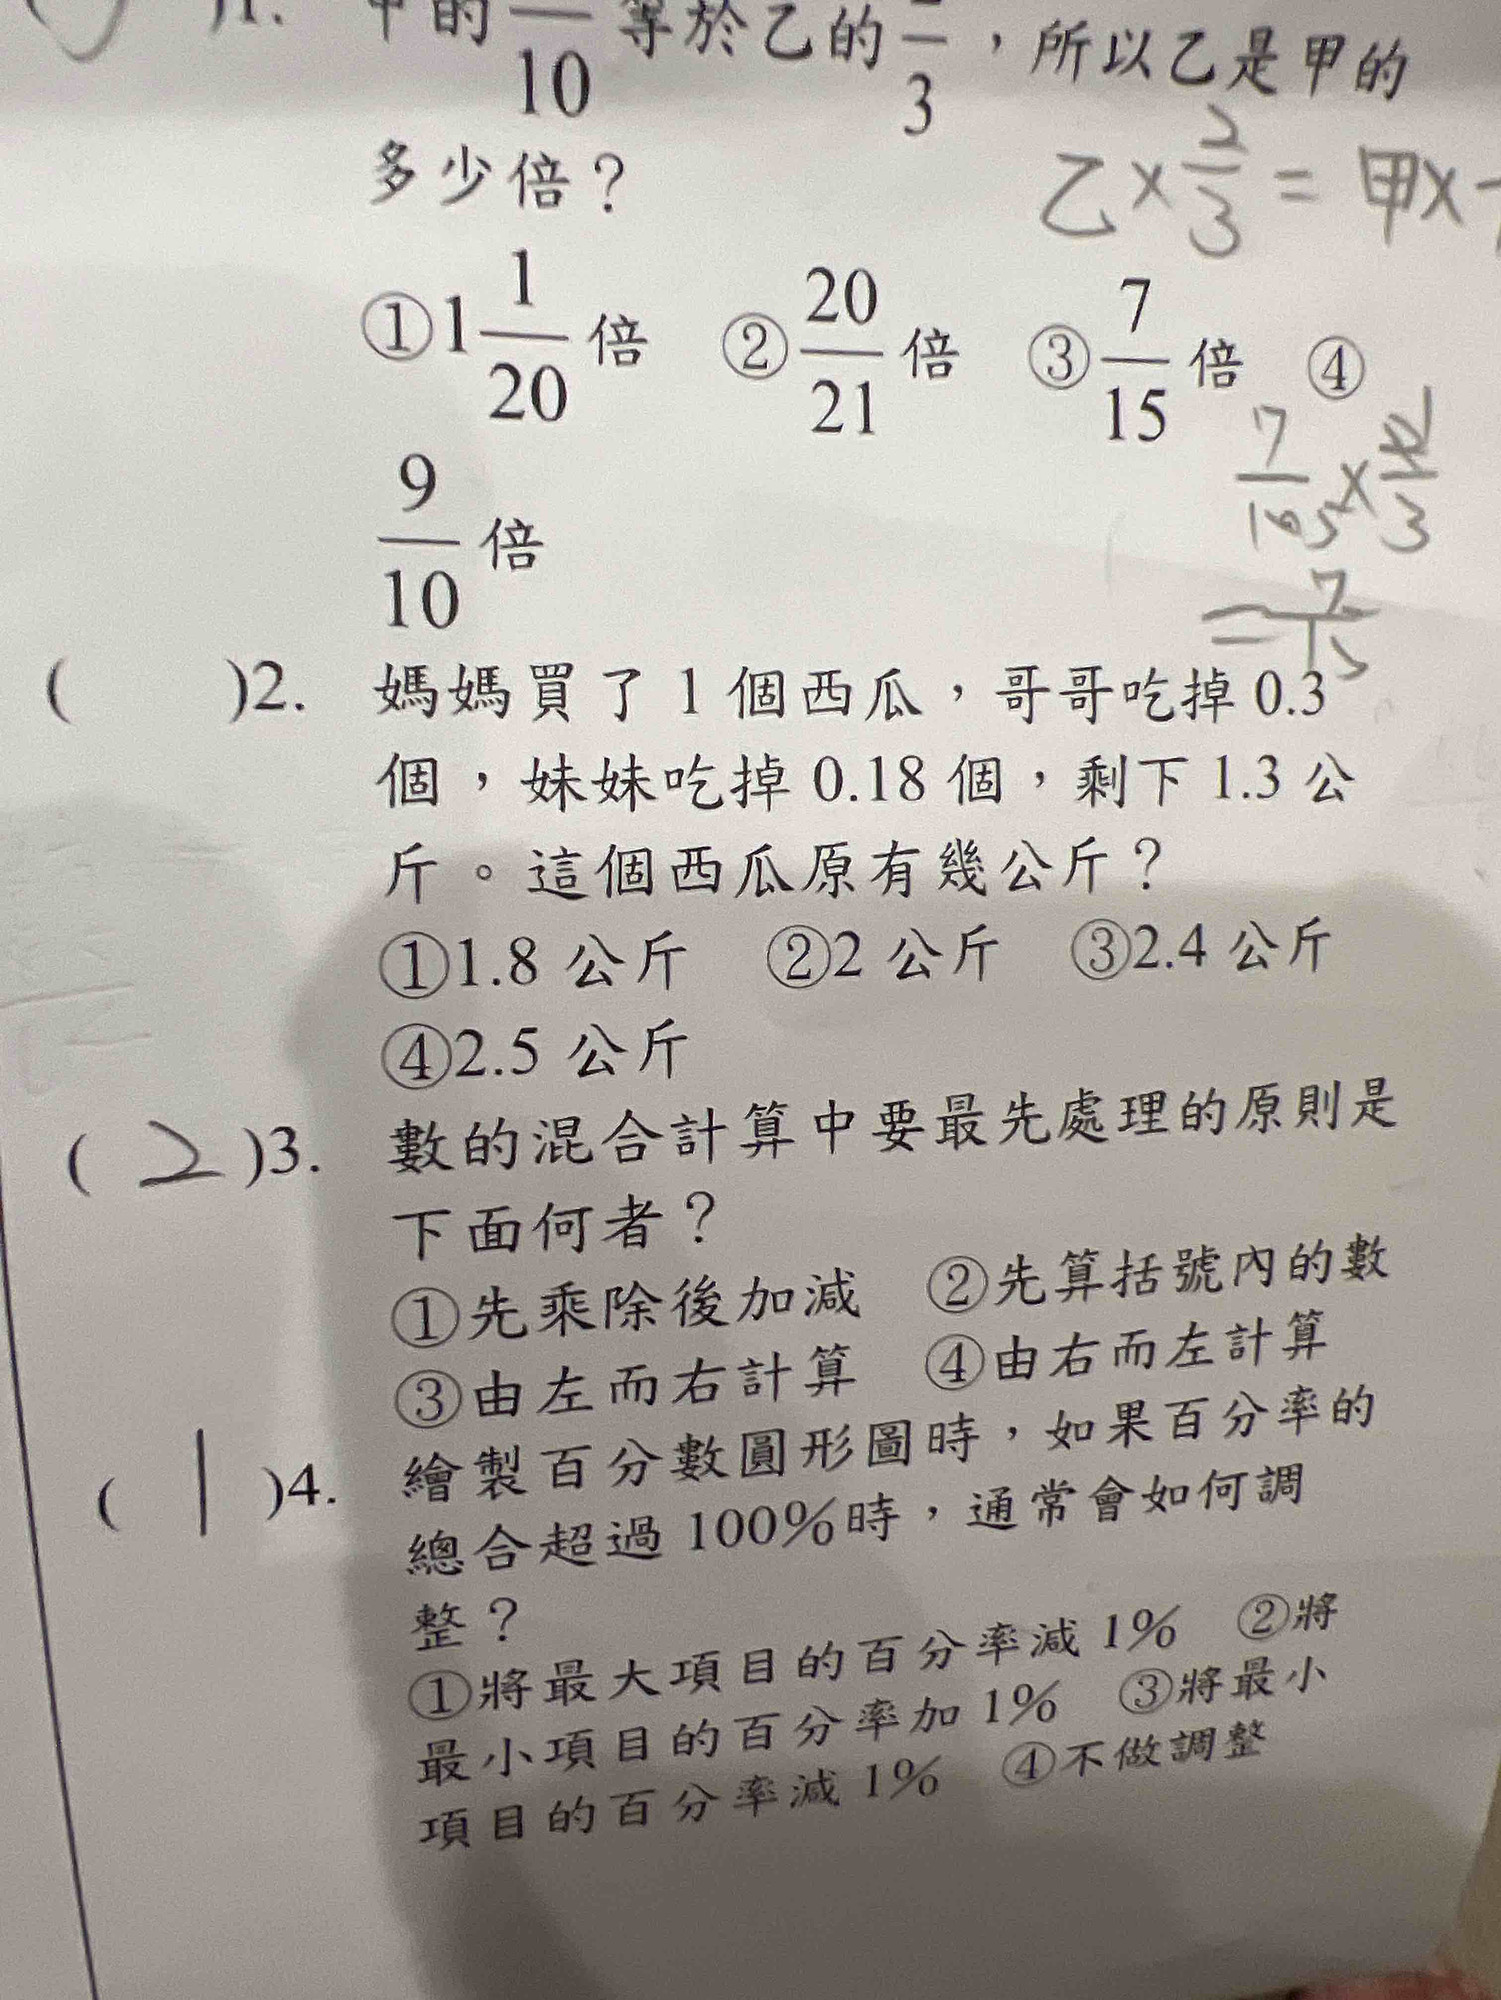 )1. 甲的 10 等於乙的 3 ，所以乙是甲的
多少倍？
乙×2/3 = 甲×
①1 1/20 倍 ②20/21 倍 ③7/15 倍 ④
9/10 倍
7/10 5 × 2 1/3
= 7/15
( )2. 媽媽買了 1 個西瓜，哥哥吃掉 0.3
個，妹妹吃掉 0.18 個，剩下 1.3 公
斤。這個西瓜原有幾公斤？
①1.8 公斤 ②2 公斤 ③2.4 公斤
④2.5 公斤
( 2 )3. 數的混合計算中要最先處理的原則是
下面何者？
①先乘除後加減 ②先算括號內的數
③由左而右計算 ④由右而左計算
( 1 )4. 繪製百分數圓形圖時，如果百分率的
總合超過 100%時，通常會如何調
整？
①將最大項目的百分率減 1% ②將
最小項目的百分率加 1% ③將最小
項目的百分率減 1% ④不做調整